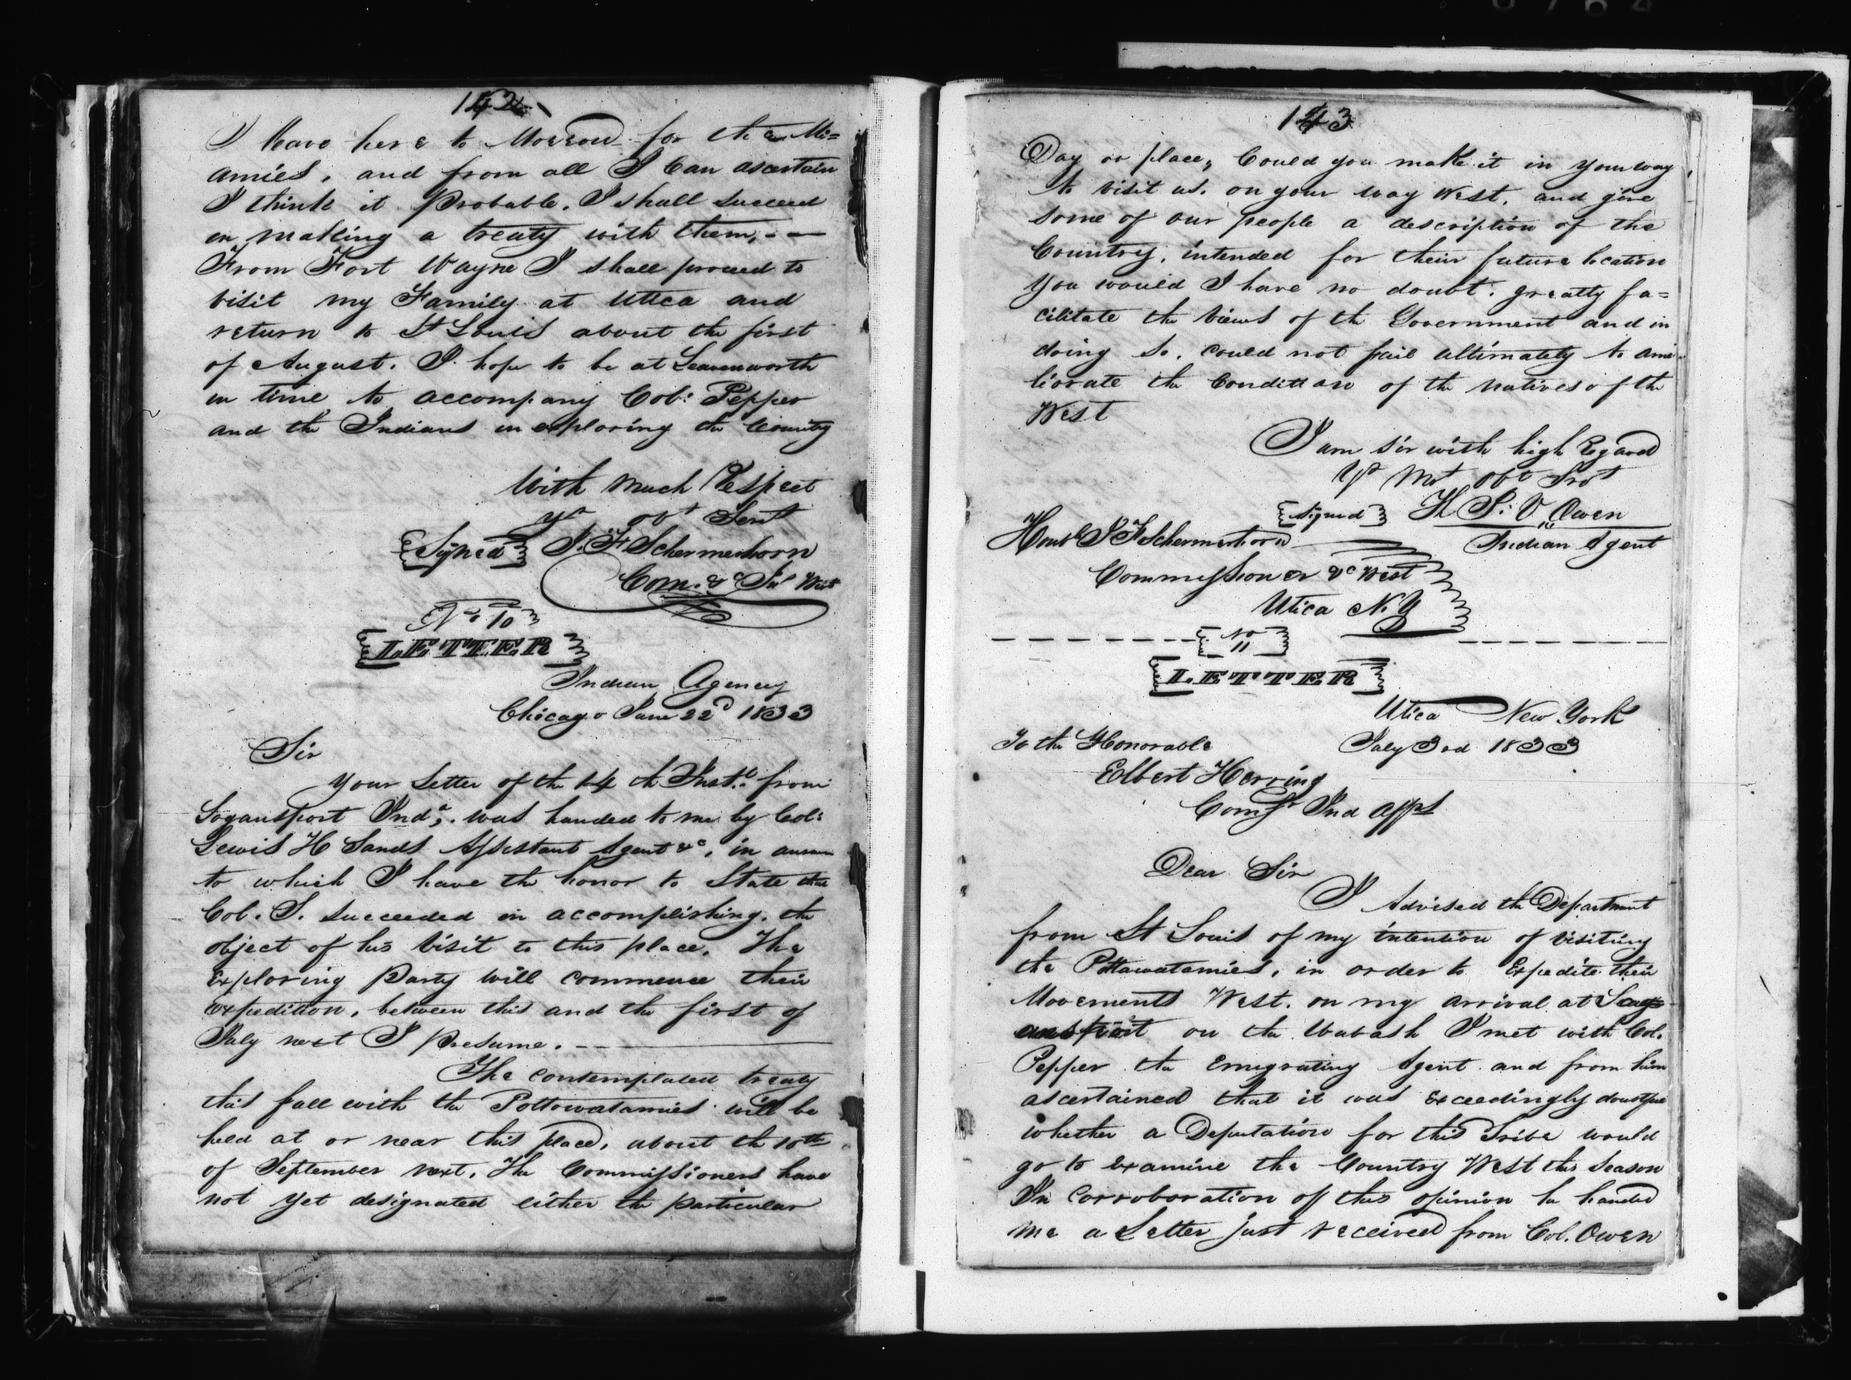 142
I leave here to Morrow for the Mi=
amies, and from all I Can ascertain
I think it Probable, I shall succeed
in making a treaty with them, - —
From Fort Wayne I shall proceed to
visit my Family at Utica and
return to St Louis about the first
of August. I hope to be at Leavenworth
in time to accompany Col: Pepper
and the Indians in exploring the Country
With Much Respect
yr obt Sert
Signed J. F. Schermerhorn
Com. &c Ind West
No 10
LETTER
Indian Agency
Chicago June 22d 1833
Sir
Your Letter of the 14 th Inst: from
Logansport Inda, was handed to me by Col:
Lewis H Sands Assistant Agent &c, in answer
to which I have the honor to State that
Col. S. succeeded in accomplishing, the
object of his Visit to this place, The
Exploring Party will commence their
expedition, between this and the first of
July next I presume. —
The contemplated treaty
this fall with the Pottowatamies will be
held at or near this place, about the 10th
of September next, The Commissioners have
not yet designated either the particular
143
Day or place, Could you make it in your way
to visit us, on your way West, and give
some of our people a description of the
Country, intended for their future location
You would I have no doubt, greatly fa=
cilitate the views of the Government and in
doing so, could not fail ultimately to ame-
liorate the Condition of the natives of the
West
I am sir with high Regard
Yr Mt obt Srvt
Signed Th. J. V. Owen
Indian Agent
Honbl J F Schermerhorn
Commissioner &c West
Utica N. Y
No 11
LETTER
Utica New York
July 3rd 1833
To the Honorable
Elbert Herring
Comsr Ind Affs
Dear Sir
I Advised the Department
from St Louis of my intention of visiting
the Pottawatamies, in order to Expedite their
Movements West, on my arrival at Log
ansport on the Wabash I met with Col.
Pepper the Emigrating Agent and from him
ascertained that it was exceedingly doubtful
whether a Deputation for this Tribe would
go to examine the Country West this season
In corroboration of this opinion he handed
me a Letter just received from Col. Owen